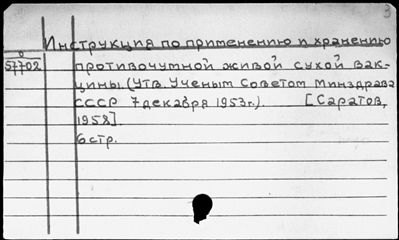 3
Инструкция по применению и хранению
0
57702
противочумной живой сухой вак-
цины. (Утв. Ученым Советом Минздрава
СССР 7 декабря 1953г.). [Саратов,
1958].
6 стр.